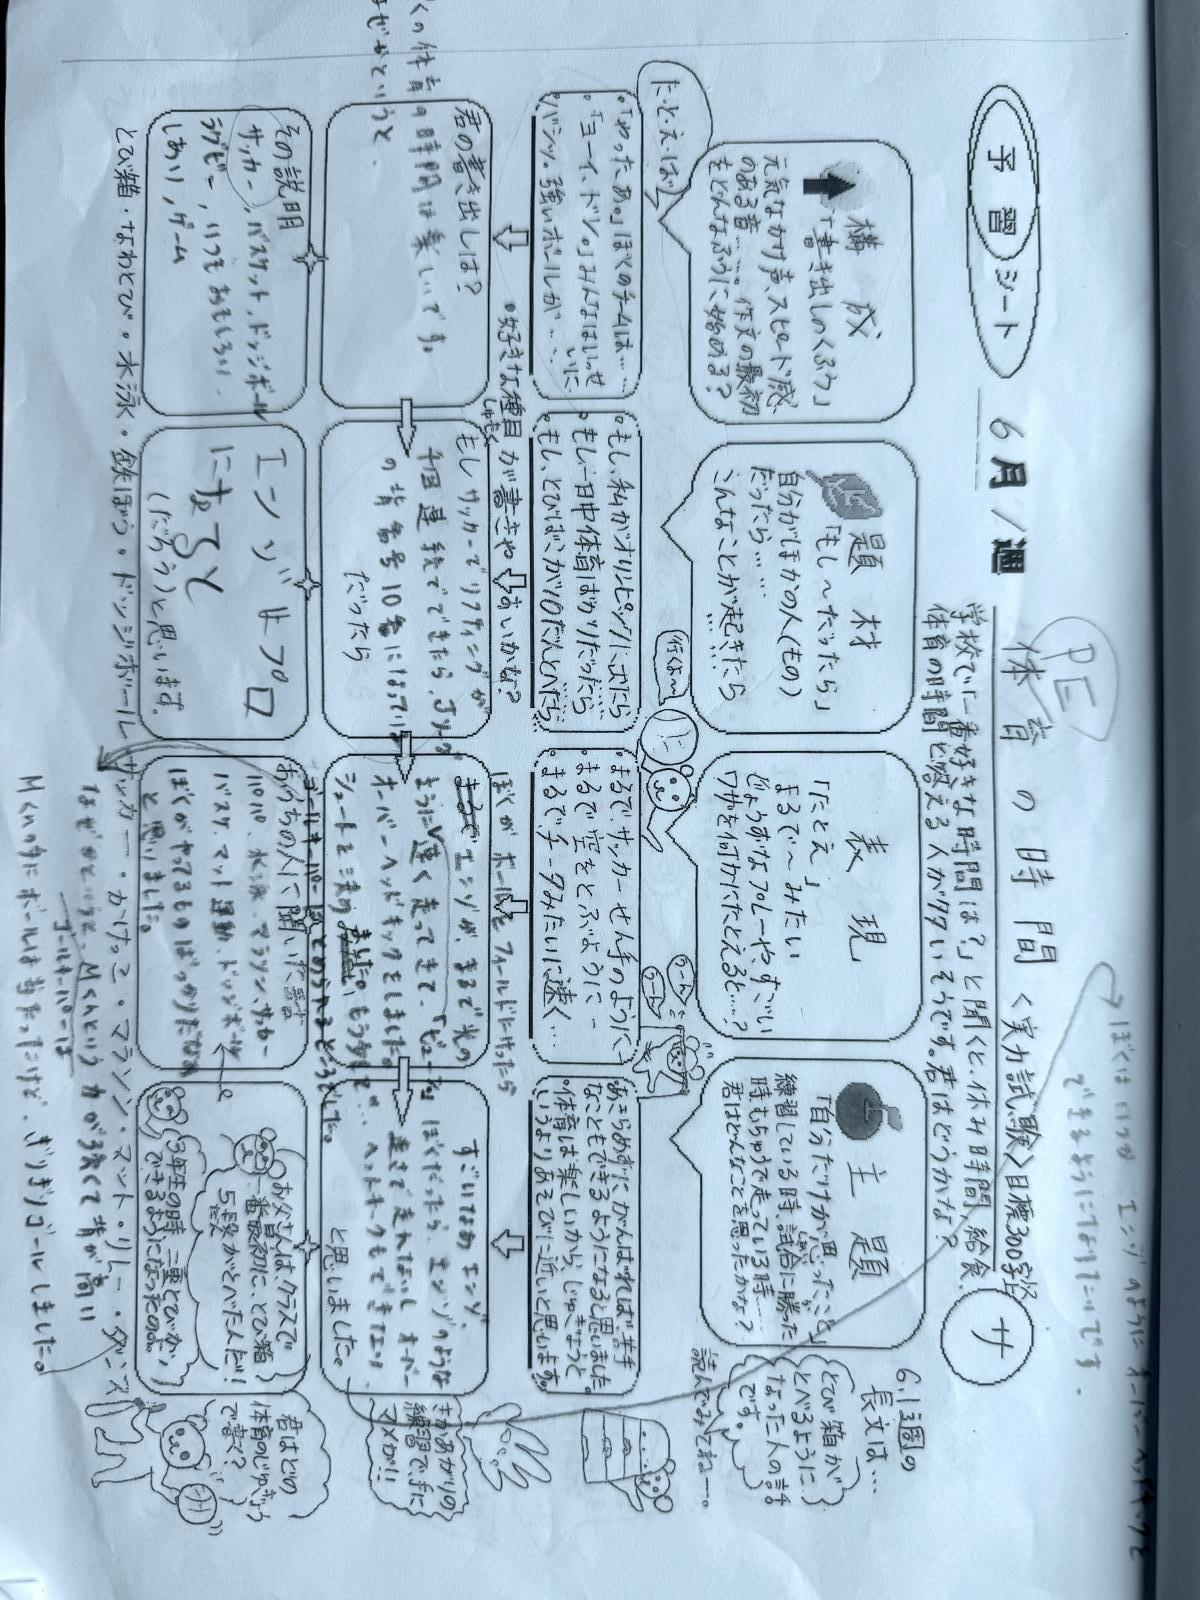 予習シート
6月1週
体育の時間
＜実力試験＞目標300字
サ
PE
学校で「一番好きな時間は？」と聞くと、休み時間、給食、
体育の時間と答える人が多いそうです。君はどうかな？
ぼくはいつか エンゾのように オーバーヘッドキックを
できるようになりたいです。
構成
「書き出しのくふう」
元気なかけ声、スピード感
のある音……。作文の最初
をどんなふうに始める？
たとえば
題材
「もし～だったら」
自分がほかの人（もの）
だったら……
こんなことが起きたら
……
行くよ～
表現
「たとえ」
まるで～みたい
じょうずなプレーや、すごい
ワザを何かにたとえると…？
主題
「自分だけが思ったこと」
練習している時、試合に勝った
時、もちゅうで走っている時……
君はどんなことを思ったかな？
6.1週の
長文は…
とび箱が
とべるように
なった人の話
です。
読んでみてね―。
・「やったあ。」ぼくのチームは……
・「ヨーイ、ドン。」みんなはいっせ
いに
・バシッ。強いボールが……
・もし、私がオリンピックに出たら
・もし、一日中体育ばかりだったら
・もし、とびばこが10だんとべたら
・まるで、サッカーせん手のように
・まるで空をとぶように
・まるでチータみたいに速く…
・あきらめずにがんばれば、苦手
なこともできるようになると思いました
・体育は楽しいから、じゅぎょうと
いうよりあそびに近いと思います。
○好きな種目が書きやすいかな？
君の書き出しは？
ぼくの体育の時間は楽しいです。
なぜかというと、
もしサッカーでリフティングが
千回連続でできたら、Jリーグ
の背番号10番になっている
だったら
ぼくがボールをフィールドにけったら
エンゾが、まるで光の
ように速く走ってきて、「ビューン」
オーバーヘッドキックをしました。
シュートを決めました。もう少しで…
ゴールキーパーにとめられるところでした。
すごいなあエンゾ。
ぼくだったら、エンゾのような
速さで走れないし、オーバー
ヘッドキックもできない
と思いました。
さかあがりの
練習で、手に
マメが!!
その説明
サッカー、バスケット、ドッジボール
ラグビー、いつもおもしろい
しあい、ゲーム
エンゾはプロ
になると
（だろう）と思います。
おうちの人に聞いた話
パパ、水泳、マラソン、サッカー
バスケ、マット運動、ドッジボール
ぼくがやってるものばっかりだなあ
と思いました。
お父さんは、クラスで
一番最初に、とび箱
5段がとべた人だ！
3年生の時、二重とびが
できるようになったのよ。
君はどの
体育のじゅぎょう
で書く？
とび箱・なわとび・水泳・鉄ぼう・ドッジボール・サッカー・かけっこ・マラソン・マット・リレー・ダンス
なぜかというと、Mくんという 力が強くて背が高い
ゴールキーパーは
Mくんの手にボールは当たったけど、ぎりぎりゴールしました。